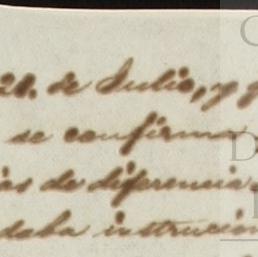 21. de Julio, y
se confirma
ias de diferencia
daba instruccion